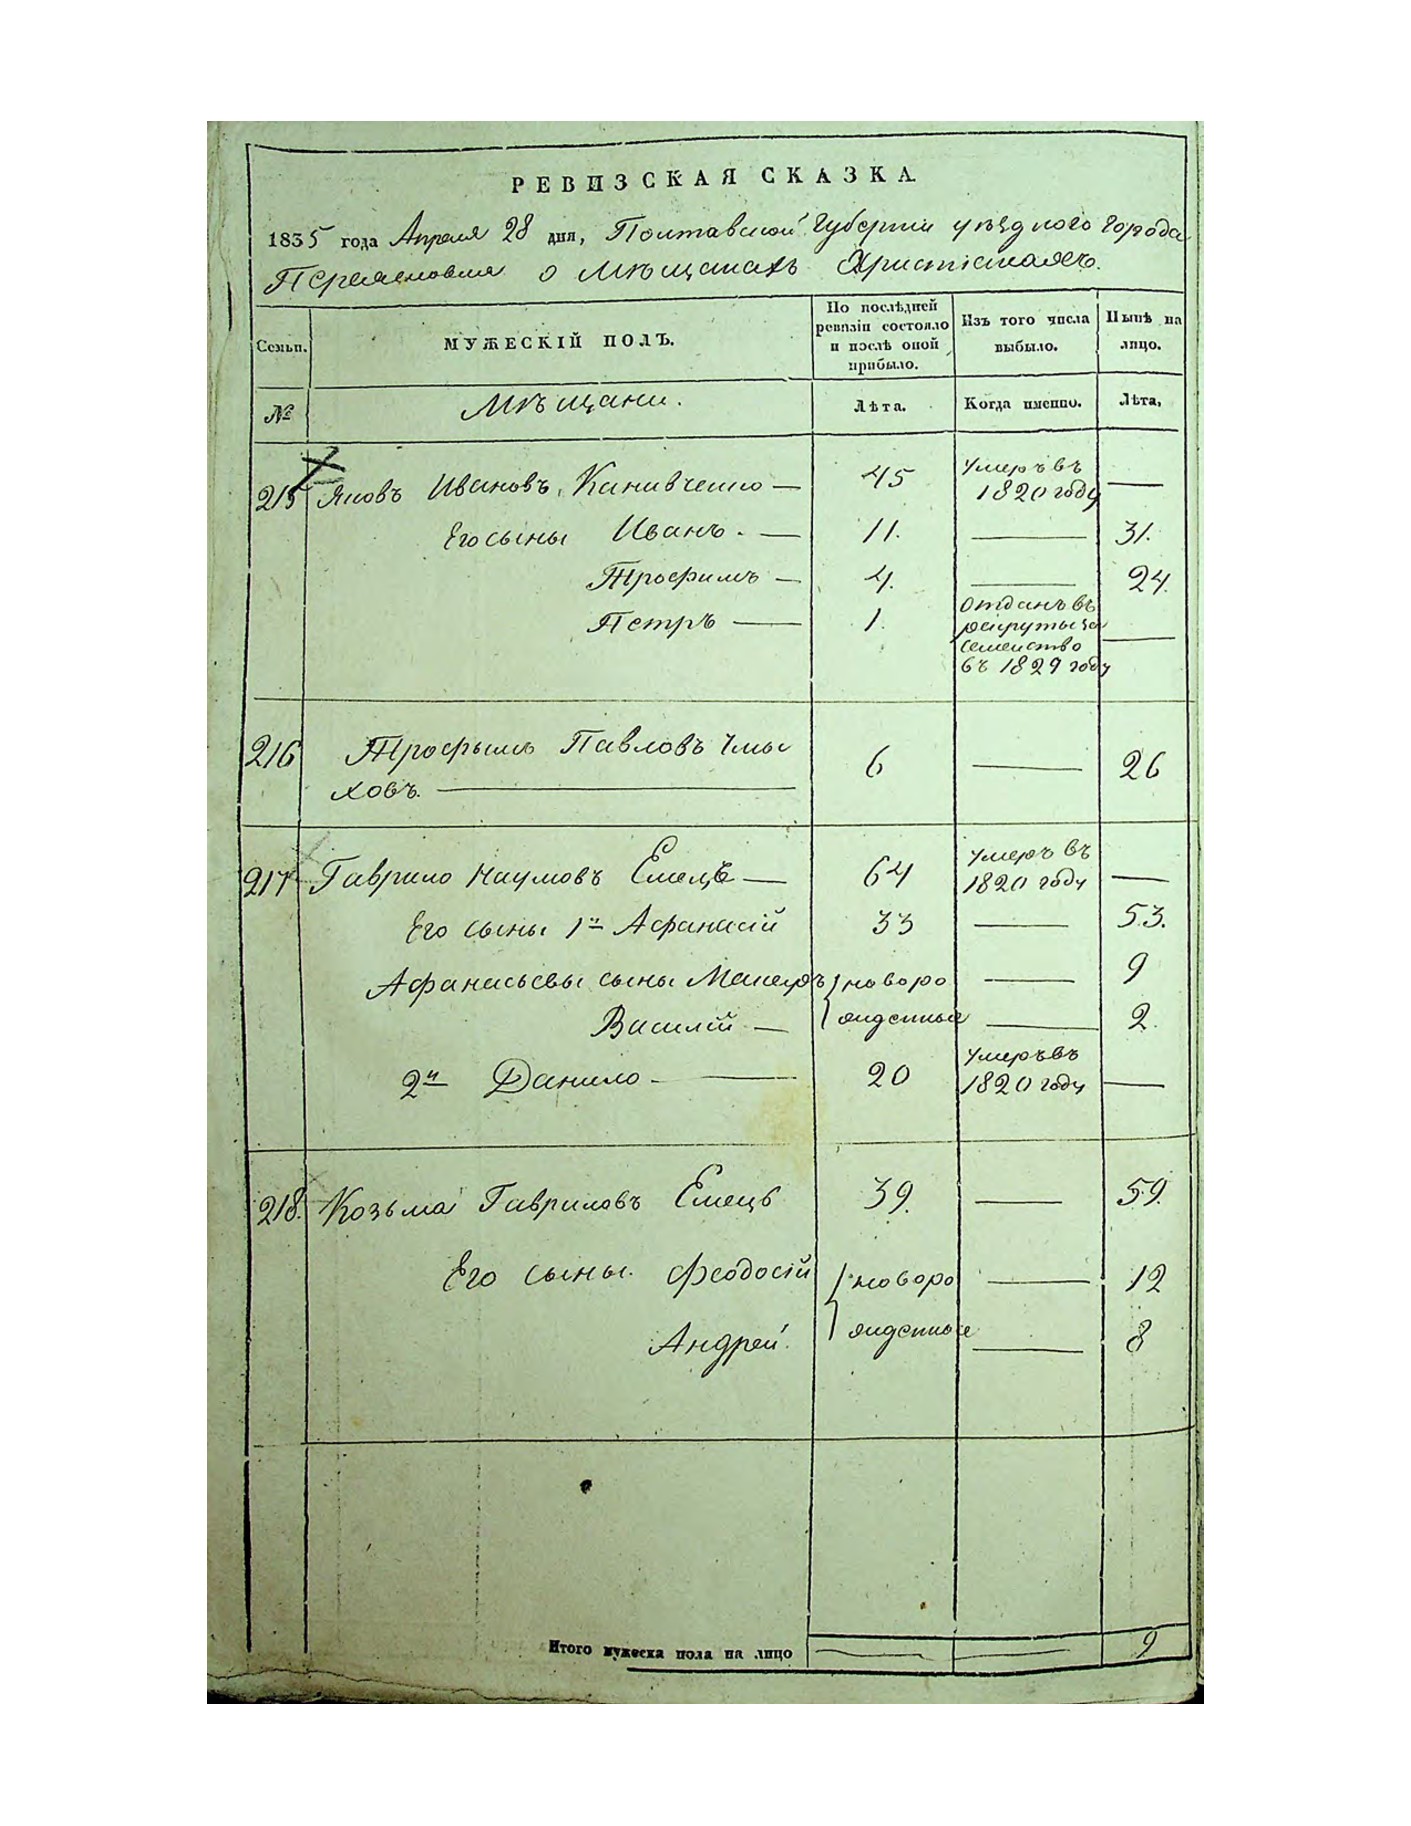 РЕВИЗСКАЯ СКАЗКА
1835 года Апреля 28 дня, Полтавской Губернии уѣздного города
Переяславля о Мѣщанахъ Христіанахъ.
Семьи.
МУЖЕСКІЙ ПОЛЪ.
По послѣдней ревизіи состояло и послѣ оной прибыло.
Изъ того числа выбыло.
Нынѣ на лицо.
№
Мѣщани.
Лѣта.
Когда именно.
Лѣта,
215 Яковъ Ивановъ Канивченко — 45 Умеръ въ 1820 году —
Его сыны Иванъ. — 11. — 31.
Трофимъ — 4. — 24.
Петръ — 1. Отданъ въ рекруты за семейство въ 1829 году —
216 Трофымъ Павловъ Чмы
ховъ. — 6 — 26
217 Гаврило Наумовъ Емецъ — 64 Умеръ въ 1820 году —
Его сыны 1й Афанасій 33 — 53.
Афанасьевы сыны Макаръ новоро — 9
Василій — жденные — 2.
2й Данило — 20 Умеръ въ 1820 году —
218. Козьма Гавриловъ Емецъ 39. — 59.
Его сыны. Феодосій новоро — 12
Андрей. жденные — 8
Итого мужеска пола на лицо — — 9